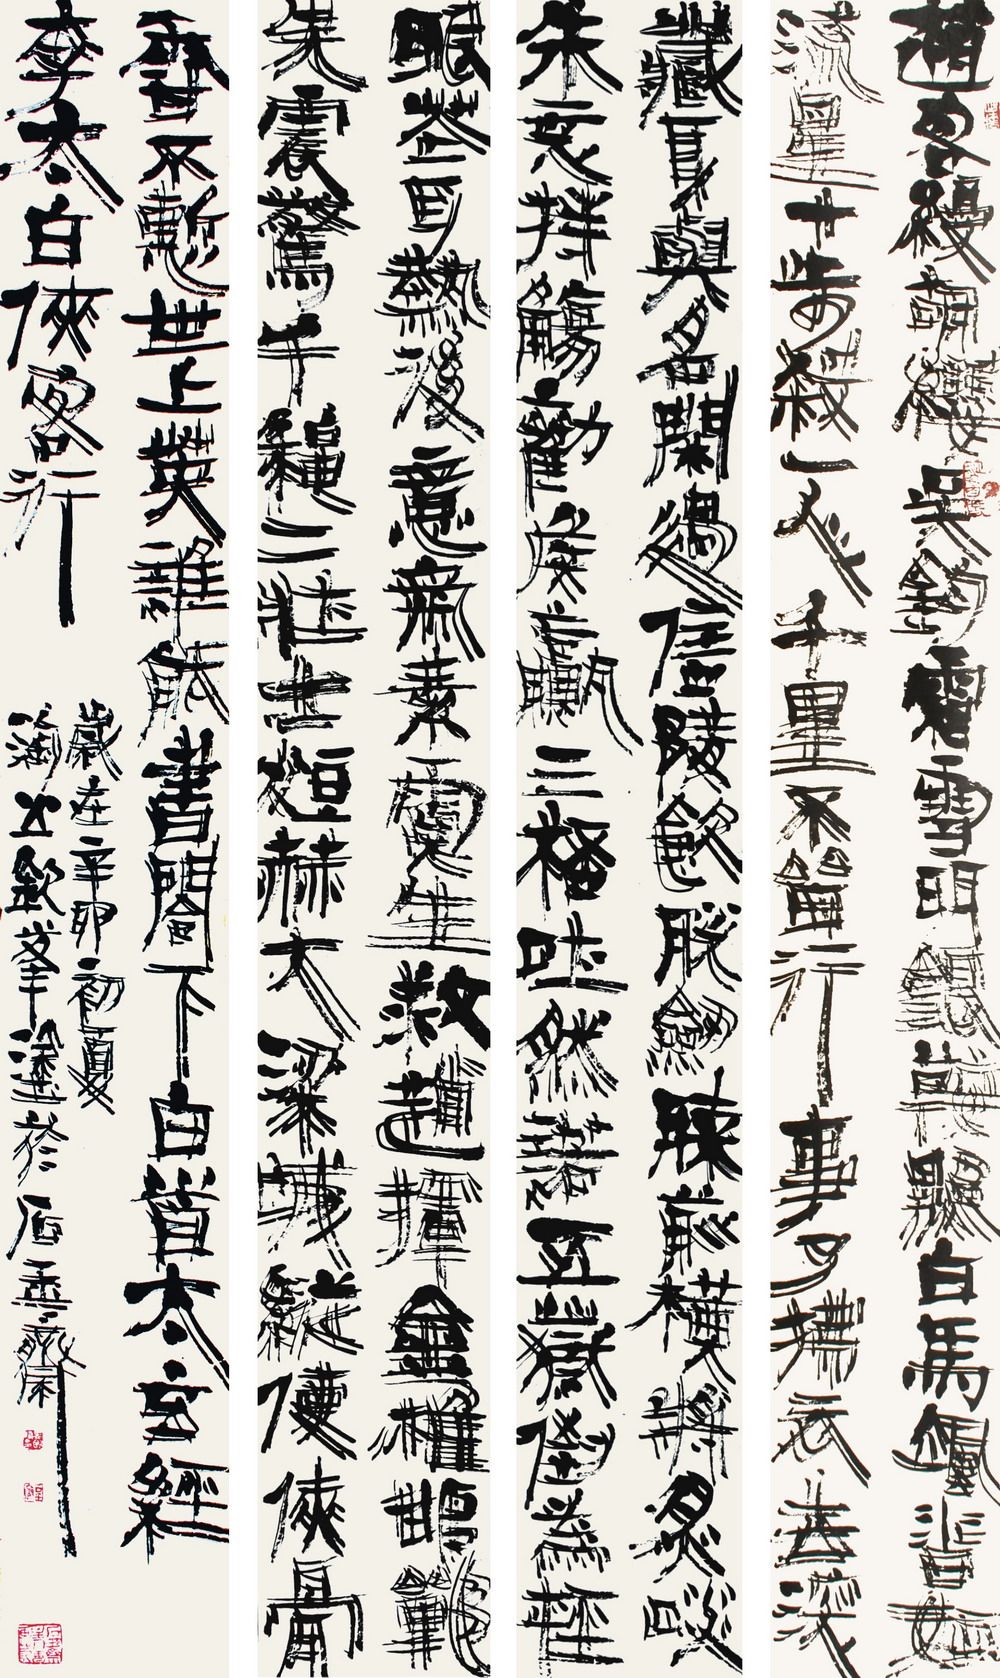 趙客縵胡纓吳鉤霜雪明銀鞍照白馬颯沓如
流星十步殺一人千里不留行事了拂衣去深
藏身與名閑過信陵飲脫劍膝前橫將炙啖
朱亥持觴勸侯嬴三杯吐然諾五嶽倒為輕
眼花耳熱後意氣素霓生救趙揮金槌邯鄲
先震驚千秋二壯士烜赫大梁城縱使俠骨
香不慙世上英誰能書閣下白首太玄經
李太白俠客行
歲在辛卯初夏
峯塗於石齋